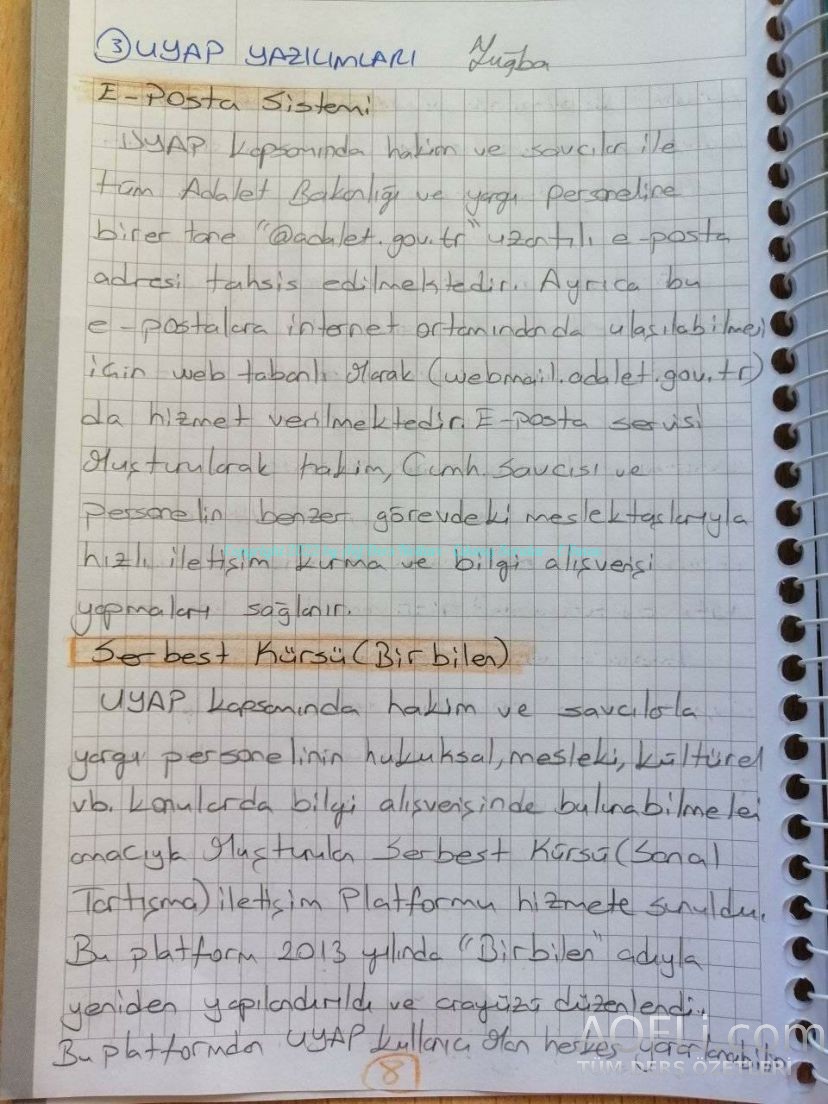 ③ UYAP YAZILIMLARI Tuğba
E-Posta Sistemi
UYAP kapsamında hakim ve savcılar ile
tüm Adalet Bakanlığı ve yargı personeline
birer tane "@adalet.gov.tr" uzantılı e-posta
adresi tahsis edilmektedir. Ayrıca bu
e-postalara internet ortamından da ulaşılabilmei
için web tabanlı olarak (webmail.adalet.gov.tr)
da hizmet verilmektedir. E-posta servisi
oluşturularak hakim, Cumh. Savcısı ve
personelin benzer görevdeki meslektaşlarıyla
hızlı iletişim kurma ve bilgi alışverişi
yapmaları sağlanır.
Serbest Kürsü (Birbilen)
UYAP kapsamında hakim ve savcılarla
yargı personelinin hukuksal, mesleki, kültürel
vb. konularda bilgi alışverişinde bulunabilmeleri
amacıyla oluşturulan Serbest Kürsü (Sanal
Tartışma) iletişim Platformu hizmete sunuldu.
Bu platform 2013 yılında "Birbilen" adıyla
yeniden yapılandırıldı ve arayüzü düzenlendi.
Bu platformdan UYAP kullanıcı olan herkes yararlanabilir
8
AOFLi.com
TÜM DERS ÖZETLERİ